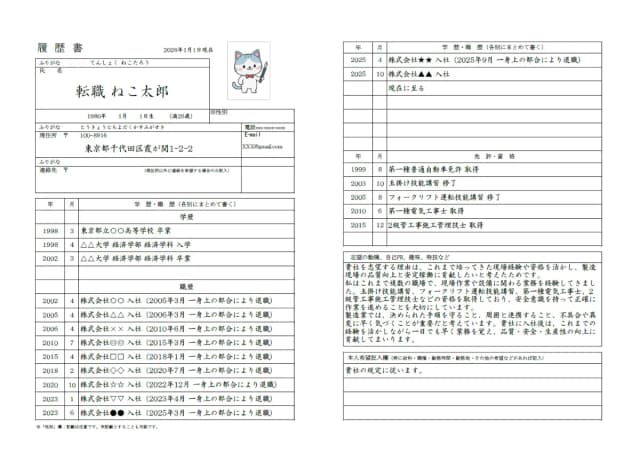 履 歴 書
2026年1月1日現在
ふりがな
てんしょく ねこたろう
氏 名
転職 ねこ太郎
1980年 1月 1日生
※性別
ふりがな
とうきょうとちよだくかすみがせき
電話xxx-xxxx-xxxx
現住所 〒
100-8916
E-mail
東京都千代田区霞が関1-2-2
XXX@gmail.com
ふりがな
連絡先 〒
(現住所以外に連絡を希望する場合のみ記入)
年 月 学 歴・職 歴 (各別にまとめて書く)
学歴
1998 3 東京都立○○高等学校 卒業
1998 4 △△大学 経済学部 経済学科 入学
2002 3 △△大学 経済学部 経済学科 卒業
職歴
2002 4 株式会社○○ 入社 (2005年3月 一身上の都合により退職)
2005 4 株式会社△△ 入社 (2006年3月 一身上の都合により退職)
2006 4 株式会社×× 入社 (2010年6月 一身上の都合により退職)
2010 7 株式会社◎◎ 入社 (2015年3月 一身上の都合により退職)
2015 4 株式会社□□ 入社 (2018年1月 一身上の都合により退職)
2018 2 株式会社◇◇ 入社 (2020年7月 一身上の都合により退職)
2020 10 株式会社☆☆ 入社 (2022年12月 一身上の都合により退職)
2023 1 株式会社▽▽ 入社 (2023年4月 一身上の都合により退職)
2023 6 株式会社●● 入社 (2025年3月 一身上の都合により退職)
※「性別」欄：記載は任意です。未記載とすることも可能です。
年 月 学 歴・職 歴 (各別にまとめて書く)
2025 4 株式会社★★ 入社 (2025年9月 一身上の都合により退職)
2025 10 株式会社▲▲ 入社
現在に至る
年 月 免 許・資 格
1999 8 第一種普通自動車免許 取得
2003 10 玉掛け技能講習 修了
2005 8 フォークリフト運転技能講習 修了
2010 6 第一種電気工事士 取得
2015 12 2級管工事施工管理技士 取得
志望の動機、自己PR、趣味、特技など
貴社を志望する理由は、これまで培ってきた現場経験や資格を活かし、製造
現場の品質向上と安定稼働に貢献したいと考えたためです。
私はこれまで複数の職場で、現場作業や設備に関わる業務を経験してきまし
た。玉掛け技能講習、フォークリフト運転技能講習、第一種電気工事士、2
級管工事施工管理技士などの資格を取得しており、安全意識を持って正確に
作業を進めることを大切にしています。
製造業では、決められた手順を守ること、周囲と連携すること、不具合や異
変に早く気づくことが重要だと考えています。貴社に入社後は、これまでの
経験を活かしながら一日でも早く業務を覚え、品質・安全・生産性の向上に
貢献してまいります。
本人希望記入欄 (特に給料・職種・勤務時間・勤務地・その他の希望などがあれば記入)
貴社の規定に従います。